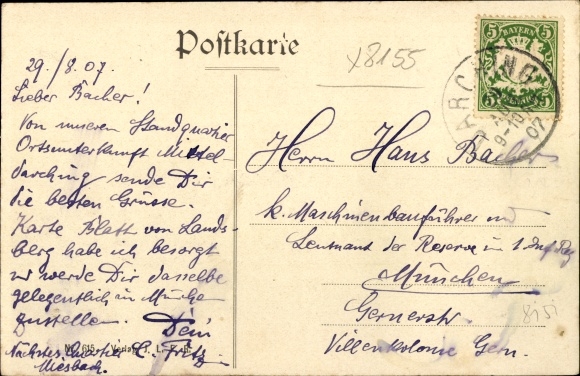 Postkarte
x8155
5 BAYERN 5
5 5
DARCHING
9-10
07
29./8.07.
Lieber Bacher!
Von unserem Standquartier
Ortsunterkunft Mittel-
darching sende Dir
die besten Grüsse.
Karte Blatt von Lands-
berg habe ich besorgt
u werde Dir dasselbe
gelegentlich in München
zustellen. Dein
Fritz
Nächstes Quartier
Miesbach.
No 615. Verlag
Herrn Hans Bacher
k. Maschinenbauführer und
Leutnant der Reserve im 1. Inf. Reg
München
Gernerstr.
Villenkolonie Gern.
8155